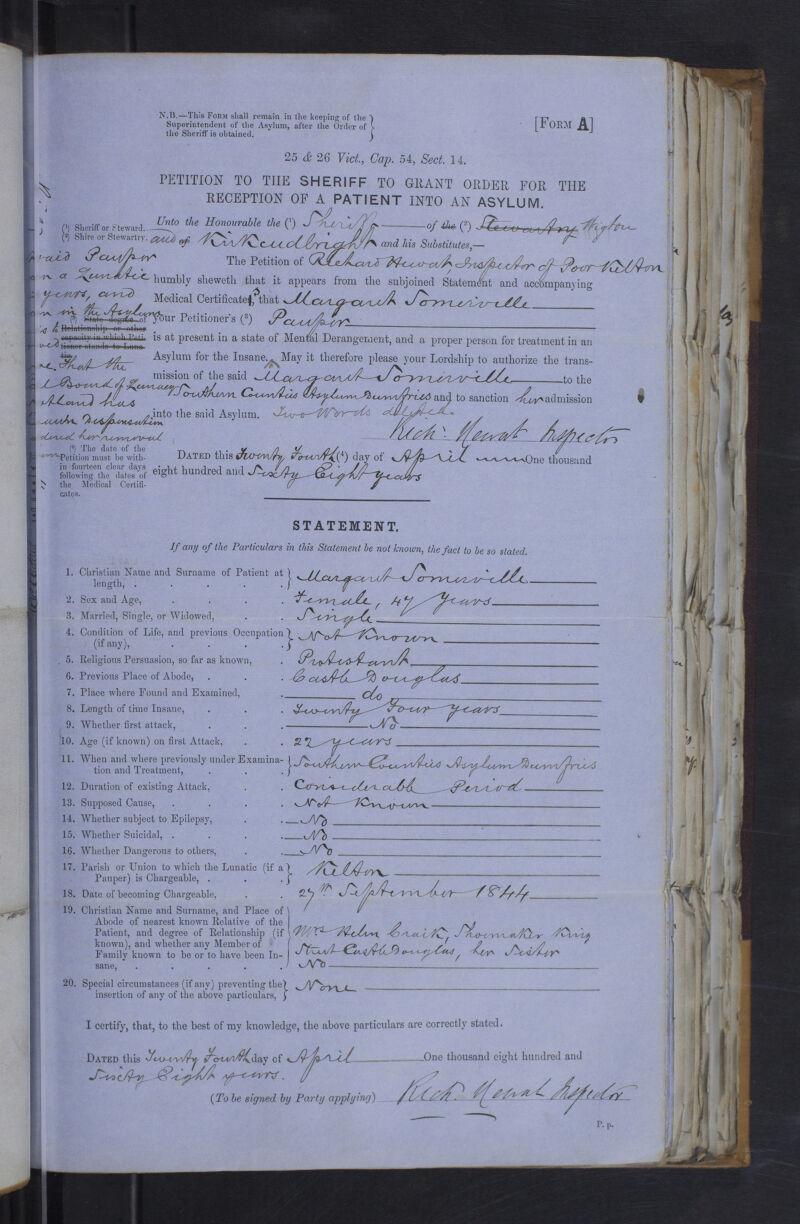 N.B.—This Form shall remain in the keeping of the
Superintendent of the Asylum, after the Order of
the Sheriff is obtained.
[Form A]
25 & 26 Vict., Cap. 54, Sect. 14.
PETITION TO THE SHERIFF TO GRANT ORDER FOR THE
RECEPTION OF A PATIENT INTO AN ASYLUM.
(1) Sheriff or Steward.
(2) Shire or Stewartry.
Unto the Honourable the (1) Sheriff of the (2) Stewartry Wigton
and of Kirkcudbright and his Substitutes,—
The Petition of Richard Hewat Inspector of Poor Kelton
humbly sheweth that it appears from the subjoined Statement and accompanying
Medical Certificates, that Margaret Somerville
your Petitioner's (3) Pauper
is at present in a state of Mental Derangement, and a proper person for treatment in an
Asylum for the Insane. May it therefore please your Lordship to authorize the trans-
mission of the said Margaret Somerville to the
Southern Counties Asylum Dumfries and to sanction her admission
into the said Asylum. Two Words deleted.
Richd. Hewat Inspector
Dated this Twenty Fourth (4) day of April One thousand
eight hundred and Sixty Eight years
said Pauper
n a Lunatic
years, and
n in the Asylum
(3) State degree of
Relationship or other
capacity in which Peti-
tioner stands to Luna-
tic.
That the
Board of Lunacy
otland has
Dispensation
her removal
(4) The date of the
Petition must be with-
in fourteen clear days
following the dates of
the Medical Certifi-
cates.
STATEMENT.
If any of the Particulars in this Statement be not known, the fact to be so stated.
1. Christian Name and Surname of Patient at
length, . Margaret Somerville
2. Sex and Age, Female, 47 Years
3. Married, Single, or Widowed, Single
4. Condition of Life, and previous Occupation
(if any), Not Known
5. Religious Persuasion, so far as known, Protestant
6. Previous Place of Abode, Castle Douglas
7. Place where Found and Examined, do
8. Length of time Insane, Twenty Four years
9. Whether first attack, No
10. Age (if known) on first Attack, 22 years
11. When and where previously under Examina-
tion and Treatment, Southern Counties Asylum Dumfries
12. Duration of existing Attack, Considerable Period
13. Supposed Cause, Not Known
14. Whether subject to Epilepsy, No
15. Whether Suicidal, No
16. Whether Dangerous to others, No
17. Parish or Union to which the Lunatic (if a
Pauper) is Chargeable, Kelton
18. Date of becoming Chargeable, 27th September 1844
19. Christian Name and Surname, and Place of
Abode of nearest known Relative of the
Patient, and degree of Relationship (if
known), and whether any Member of
Family known to be or to have been In-
sane,
Mrs Helen Craik, Shoemaker King
Street Castle Douglas, her Sister
No
20. Special circumstances (if any) preventing the
insertion of any of the above particulars, None
I certify, that, to the best of my knowledge, the above particulars are correctly stated.
Dated this Twenty Fourth day of April One thousand eight hundred and
Sixty Eight years.
(To be signed by Party applying) Richd. Hewat Inspector
P. p.